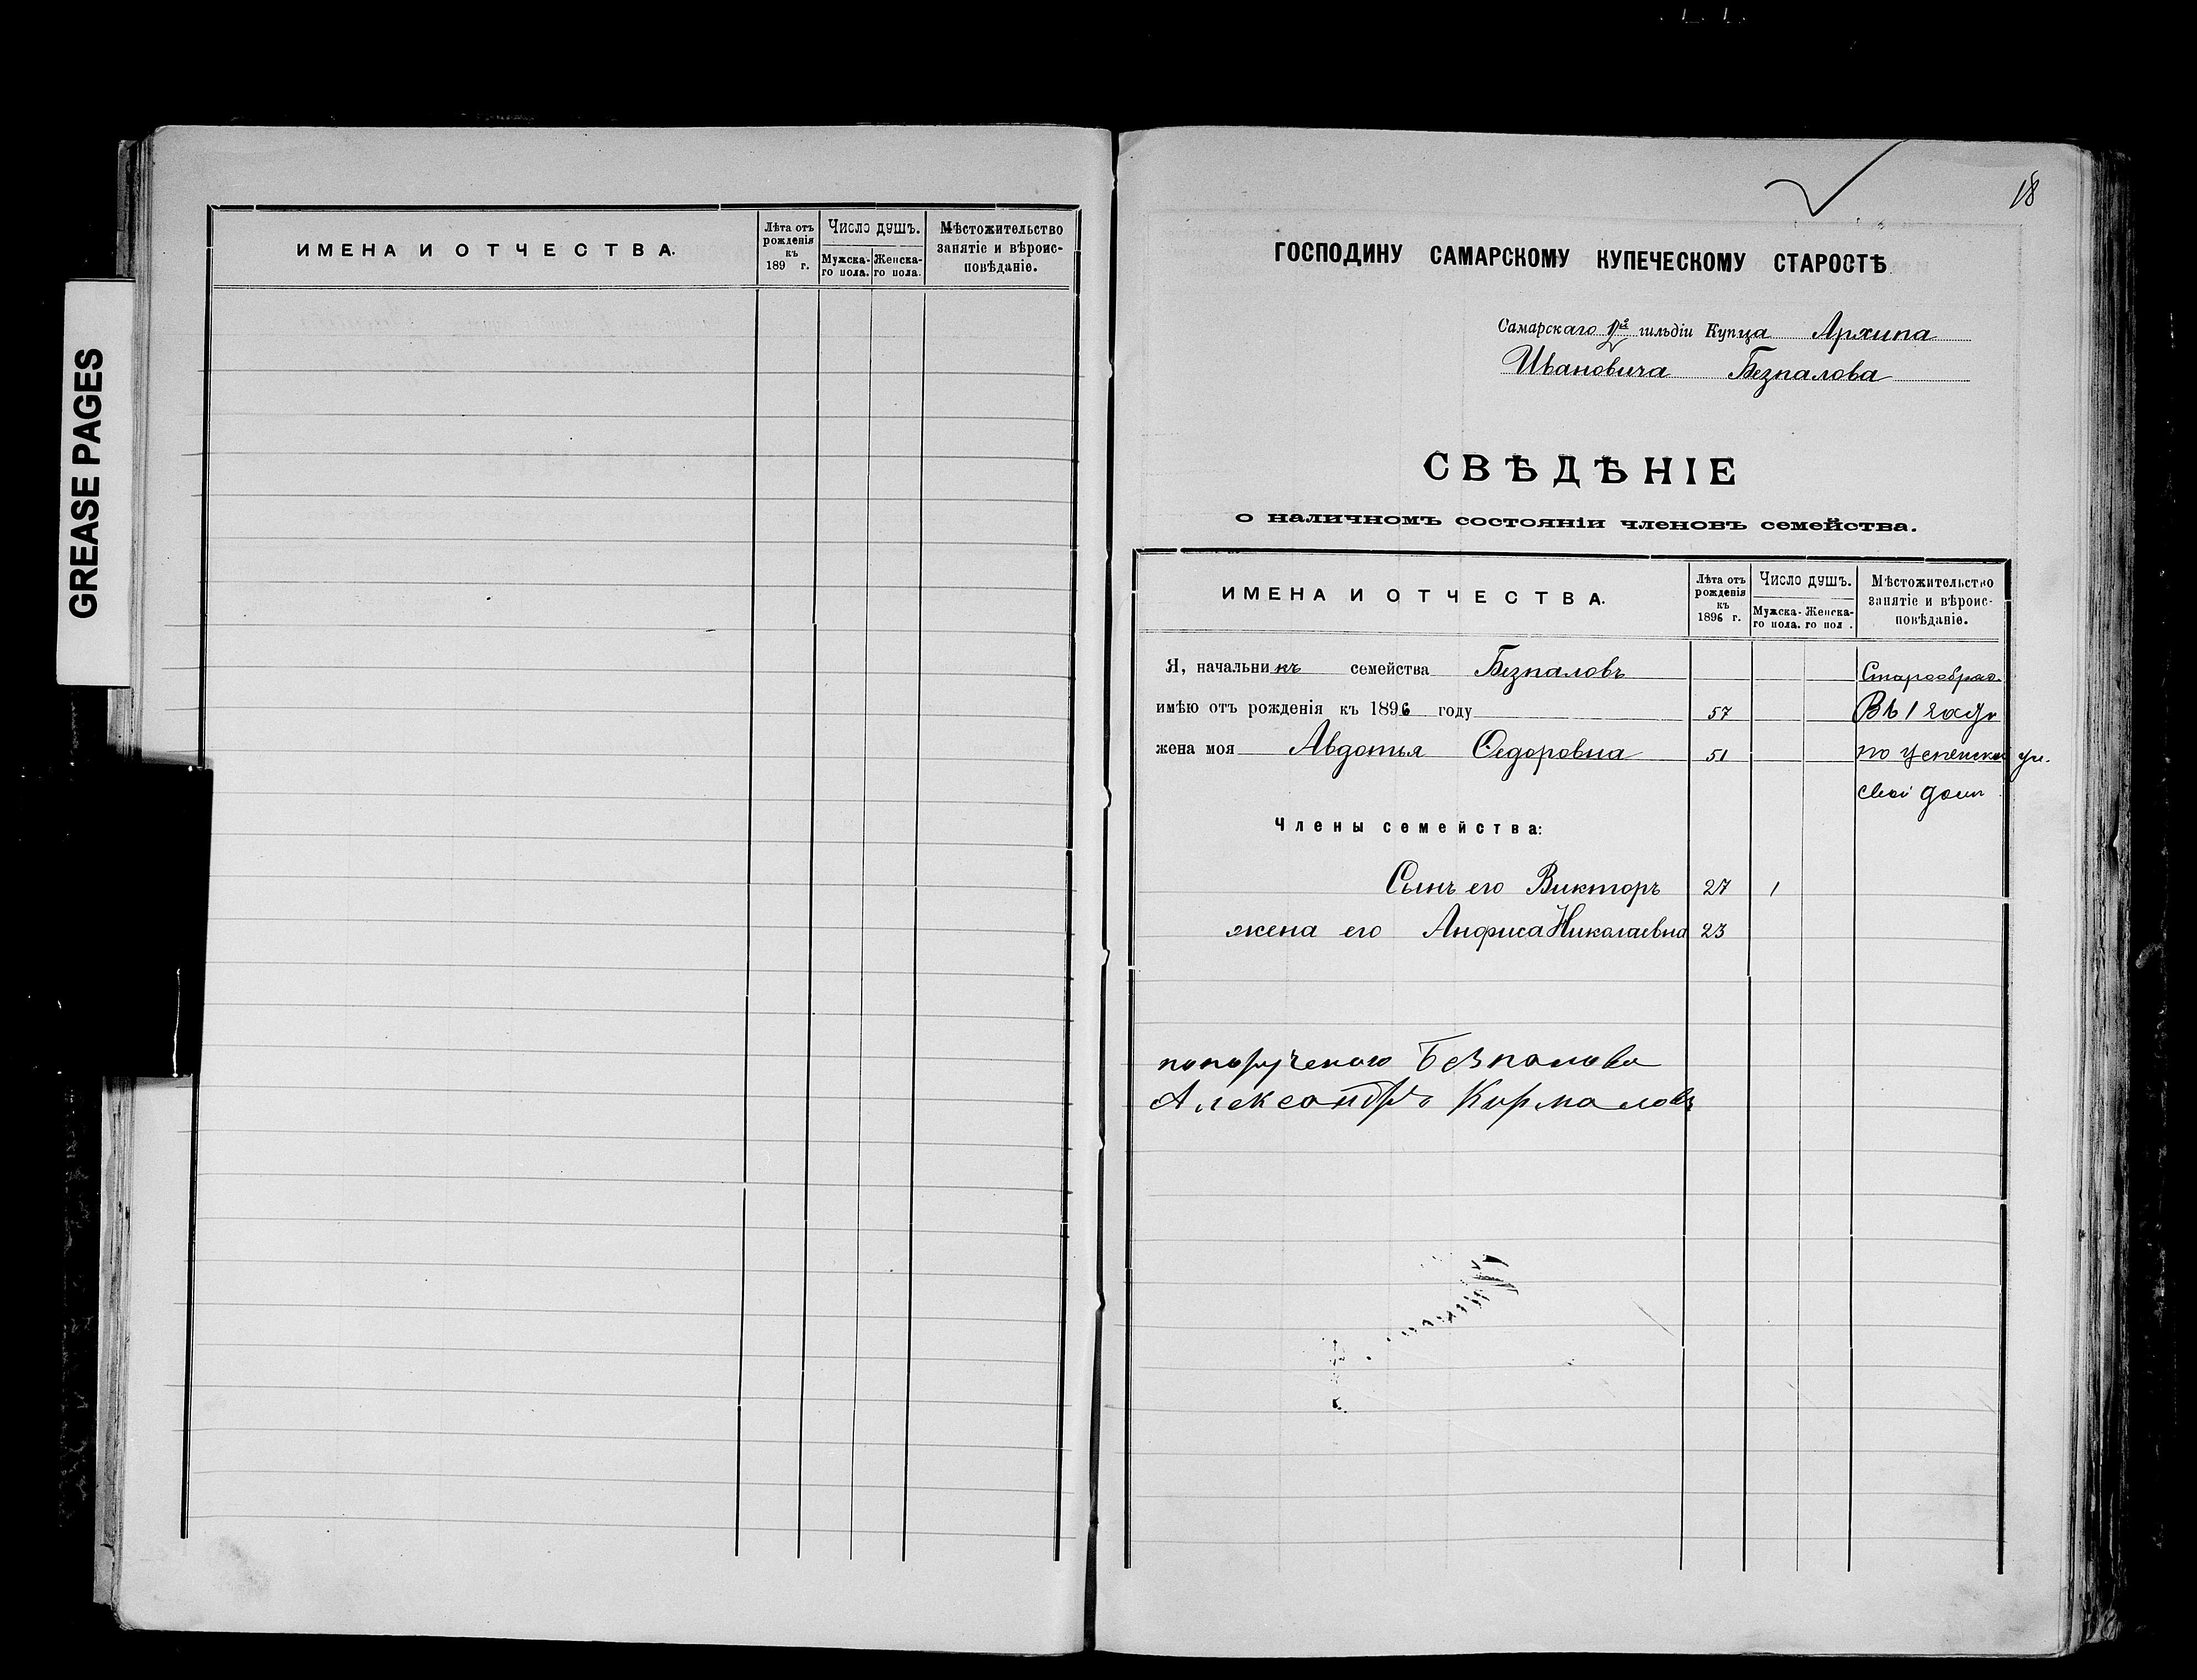 GREASE PAGES
ИМЕНА И ОТЧЕСТВА.
Лѣта отъ рожденія къ 189 г.
Число душъ.
Мужска-го пола.
Женска-го пола.
Мѣстожительство занятіе и вѣроис-повѣданіе.
18
ГОСПОДИНУ САМАРСКОМУ КУПЕЧЕСКОМУ СТАРОСТѢ
Самарскаго гильдіи Купца Архипа
Ивановича Безпалова
СВѢДѢНІЕ
о наличномъ состояніи членовъ семейства.
ИМЕНА И ОТЧЕСТВА.
Лѣта отъ рожденія къ 1896 г.
Число душъ.
Мужска-го пола.
Женска-го пол .
Мѣстожительство занятіе и вѣроис-повѣданіе.
Я, начальникъ семейства Безпаловъ Старообряд.
имѣю отъ рожденія къ 1896 году 57 Въ 1
жена моя Авдотья Ѳедоровна 51 по Успенской ул.
свой домъ
Члены семейства:
Сынъ его Викторъ 27 1
жена его Анфиса Николаевна 23
Безпалова
Александръ Кирмаловъ